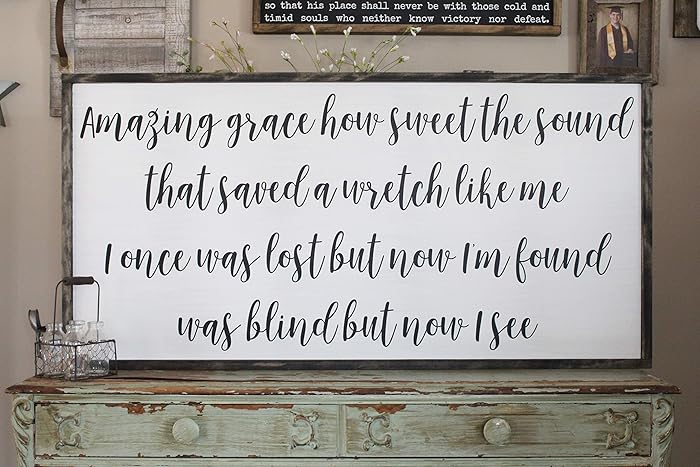 so that his place shall never be with those cold and
timid souls who neither know victory nor defeat.
Amazing grace how sweet the sound
that saved a wretch like me
I once was lost but now I'm found
was blind but now I see